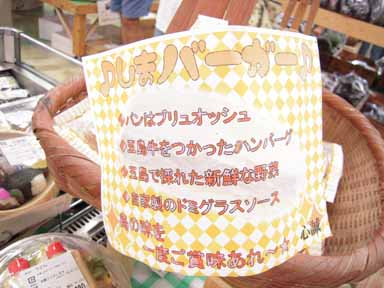 ♪しまバーガー♪
◆パンはブリュオッシュ
◆五島牛をつかったハンバーグ
◆五島で採れた新鮮な野菜
◆自家製のドミグラスソース
島の味を
一度ご賞味あれ〜☆